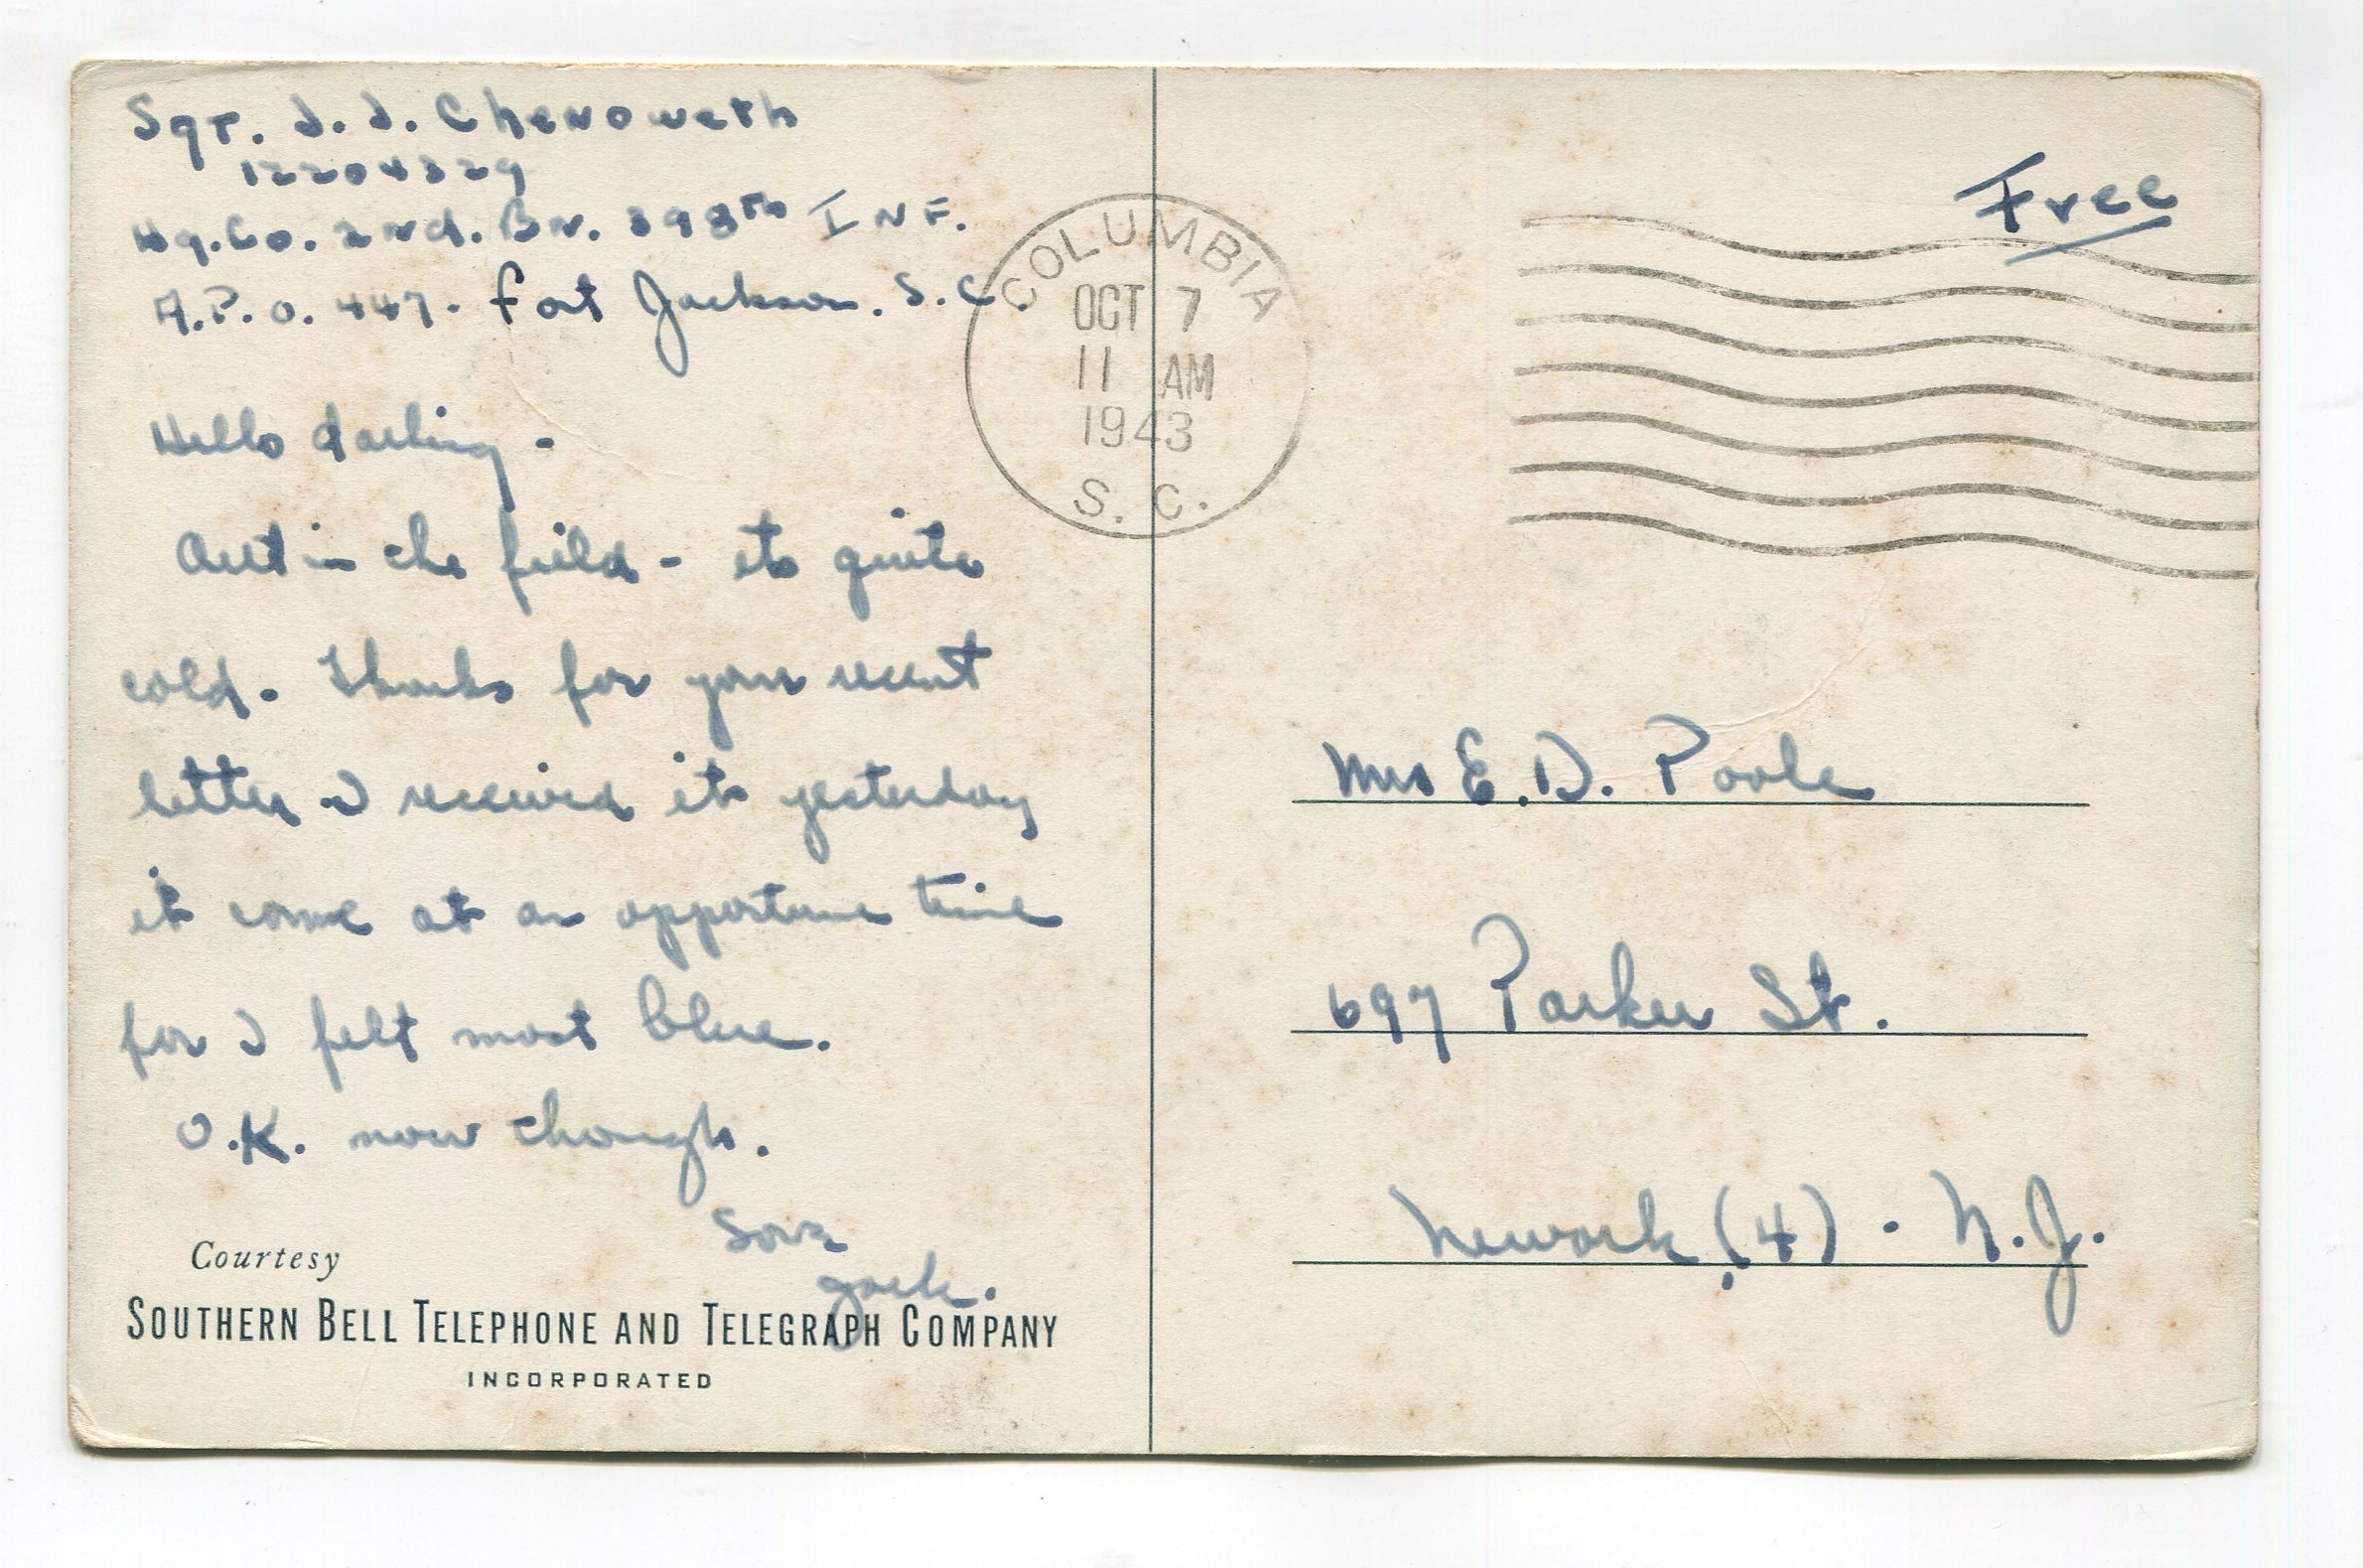 Sgt. J. J. Chenoweth
12204329
Hq. Co. 2nd. Bn. 398th INF.
A.P.O. 447. Fort Jackson. S.C.
Hello darling -
Out in the field - its quite
cold. Thanks for your recent
letter I received it yesterday
it come at an opportune time
for I felt most blue.
O.K. now though.
Love
Jack.
Courtesy
SOUTHERN BELL TELEPHONE AND TELEGRAPH COMPANY
INCORPORATED
COLUMBIA
OCT 7
11 AM
1943
S. C.
Free
Mrs E. D. Poole
697 Parker St.
Newark (4) . N.J.